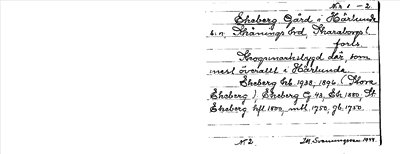 No 1 - 2.
Ekeberg Gård i Härlunda
s:n, Skånings hd, Skaraborgs l.
forts.
Skogsmarksbygd där, som
mest överallt i Härlunda.
Ekeberg hb 1938, 1896 (Stora
Ekeberg). Ekeberg G 43, Ek 1880; St.
Ekeberg hfl 1800, mtl. 1750, gb. 1750.
No 2. Svenungsson 1944.